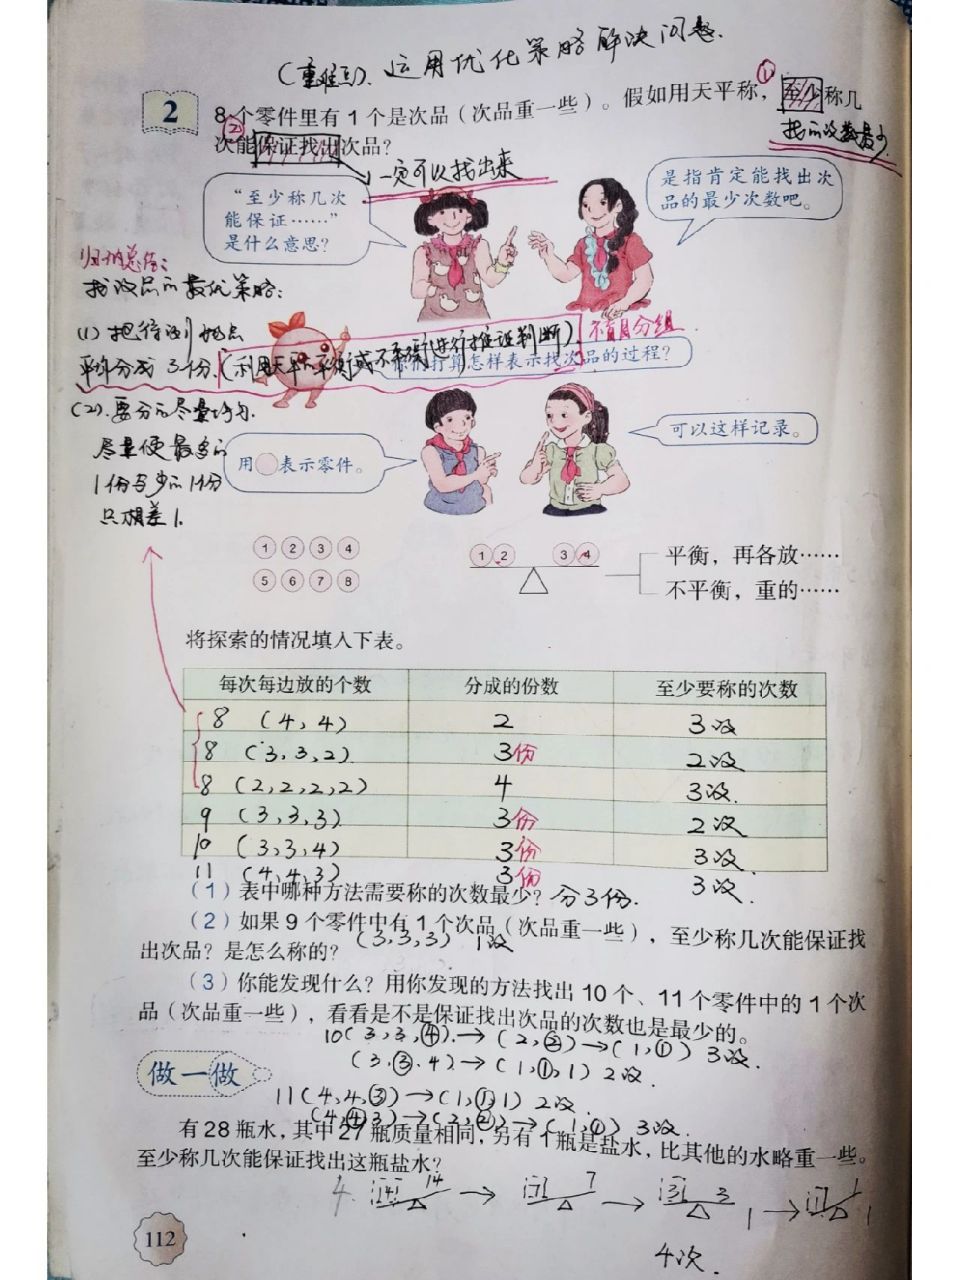 (重难点). 运用优化策略解决问题.
2
8个零件里有1个是次品（次品重一些）。假如用天平称，至少称几
①
找的次数最少.
②
次能保证找出次品？
一定可以找出来
“至少称几次
能保证……”
是什么意思？
是指肯定能找出次
品的最少次数吧。
归纳总结：
找次品的最优策略：
(1) 把待测物品
平均分成3份.(利用天平平衡或不平衡进行推理判断).
不盲目分组.
你们打算怎样表示找次品的过程？
(2).要分的尽量均匀.
尽量使最多的
1份与少的1份
只相差1.
用 表示零件。
可以这样记录。
① ② ③ ④
⑤ ⑥ ⑦ ⑧
① ② ③ ④
平衡，再各放……
不平衡，重的……
将探索的情况填入下表。
每次每边放的个数 分成的份数 至少要称的次数
8 (4,4) 2 3次
8 (3,3,2) 3份 2次
8 (2,2,2,2) 4 3次.
9 (3,3,3) 3份 2次
10 (3,3,4) 3份 3次.
11 (4,4,3) 3份 3次.
（1）表中哪种方法需要称的次数最少？分3份.
（2）如果9个零件中有1个次品（次品重一些），至少称几次能保证找
出次品？是怎么称的？ (3,3,3) 1次
（3）你能发现什么？用你发现的方法找出10个、11个零件中的1个次
品（次品重一些），看看是不是保证找出次品的次数也是最少的。
10(3,3,④)→(2,②)→(1,①) 3次.
(3,③,4)→(1,①,1) 2次.
做一做
11(4,4,③)→(1,①,1) 2次.
(4,④,3)→(2,②)→(1,①) 3次.
有28瓶水，其中27瓶质量相同，另有1瓶是盐水，比其他的水略重一些。
至少称几次能保证找出这瓶盐水？
4. 14 14 → 7 7 → 3 3 1 → 1 1 1
4次.
112